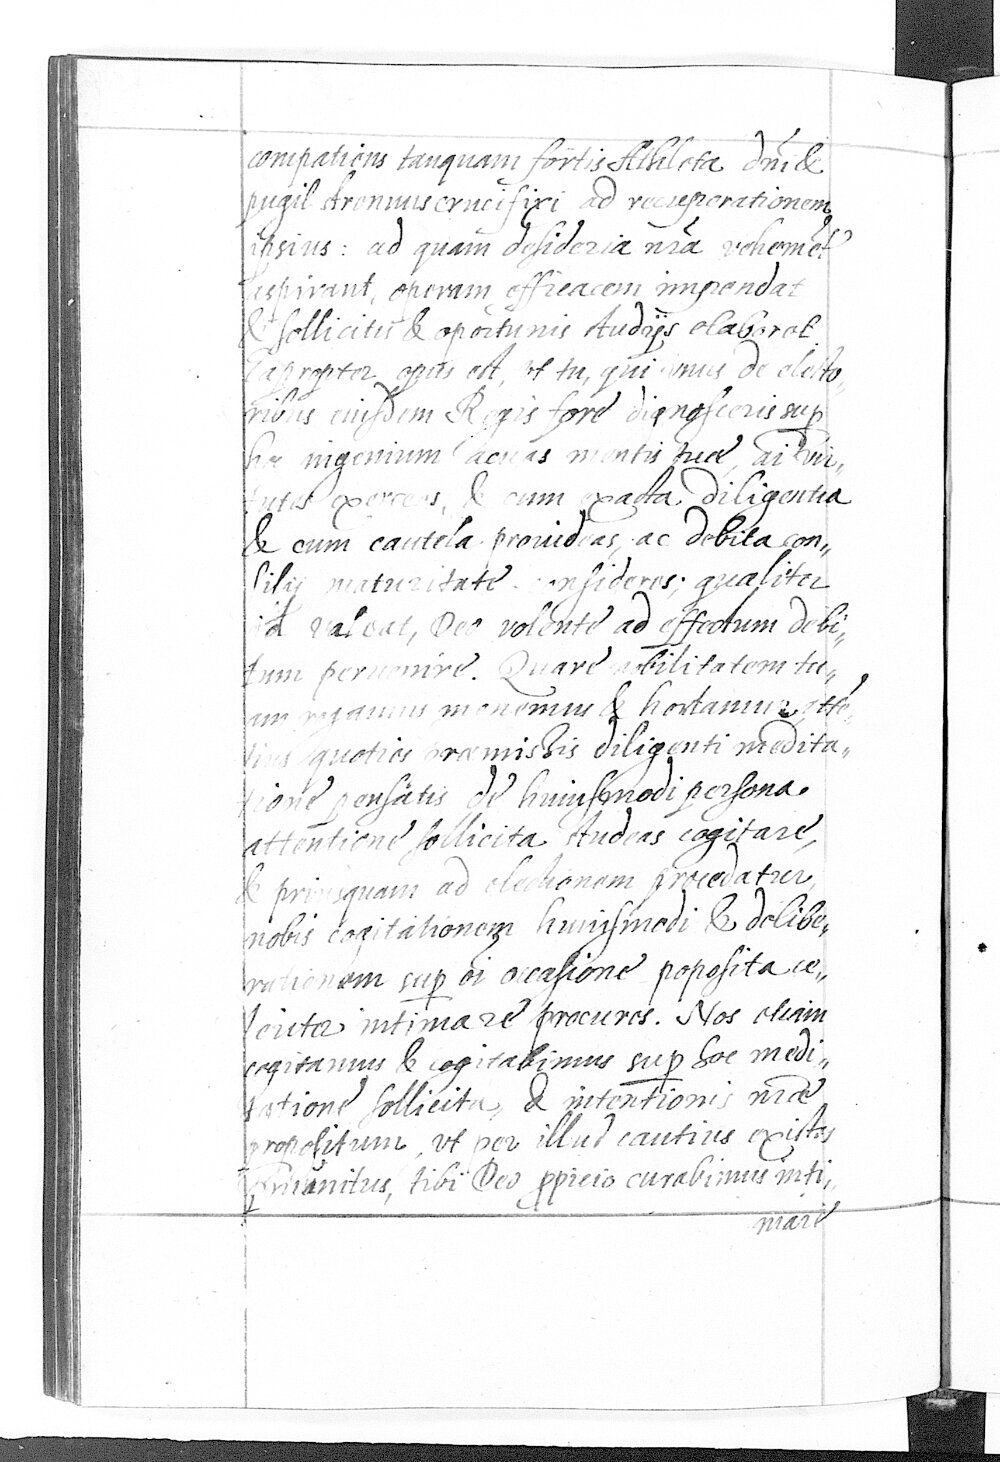 compatiens tanquam fortis Athleta dñi &
pugil strenuus crucifixi ad recuperationem
ipsius: ad quam desideria nr̃a vehemēt
aspirant, operam efficacem impendat
& sollicitis & oportunis studijs elaboret
Eapropter opus est, vt tu, qui unus de electo„
ribus eiusdem Regis fore dignosceris sup
hoc ingenium acuas mentis tuæ, ai vir„
tutes exerceas, & cum exacta diligentia
& cum cautela prouideas, ac debita con„
silij maturitate consideres; qualiter
id valeat, Deo volente ad effectum debi„
tum peruenire. Quare nobilitatem tu„
am rogamus monemus & hortamur attē„
tius quatios præmissis diligenti medita„
tione pensatis de huiusmodi persona
attentione sollicita studeas cogitare,
& priusquam ad electionem procedatur,
nobis cogitationem huiusmodi & delibe„
rationem sup ei occasione poposita ce„
leriter intimare procures. Nos etiam
cogitamus & cogitabimus sup hoc medi„
tatione sollicita, & intentionis nr̃æ
propositum, vt per illud cautius existas
p̃munitus, tibi Deo ppicio curabimus inti„
mare